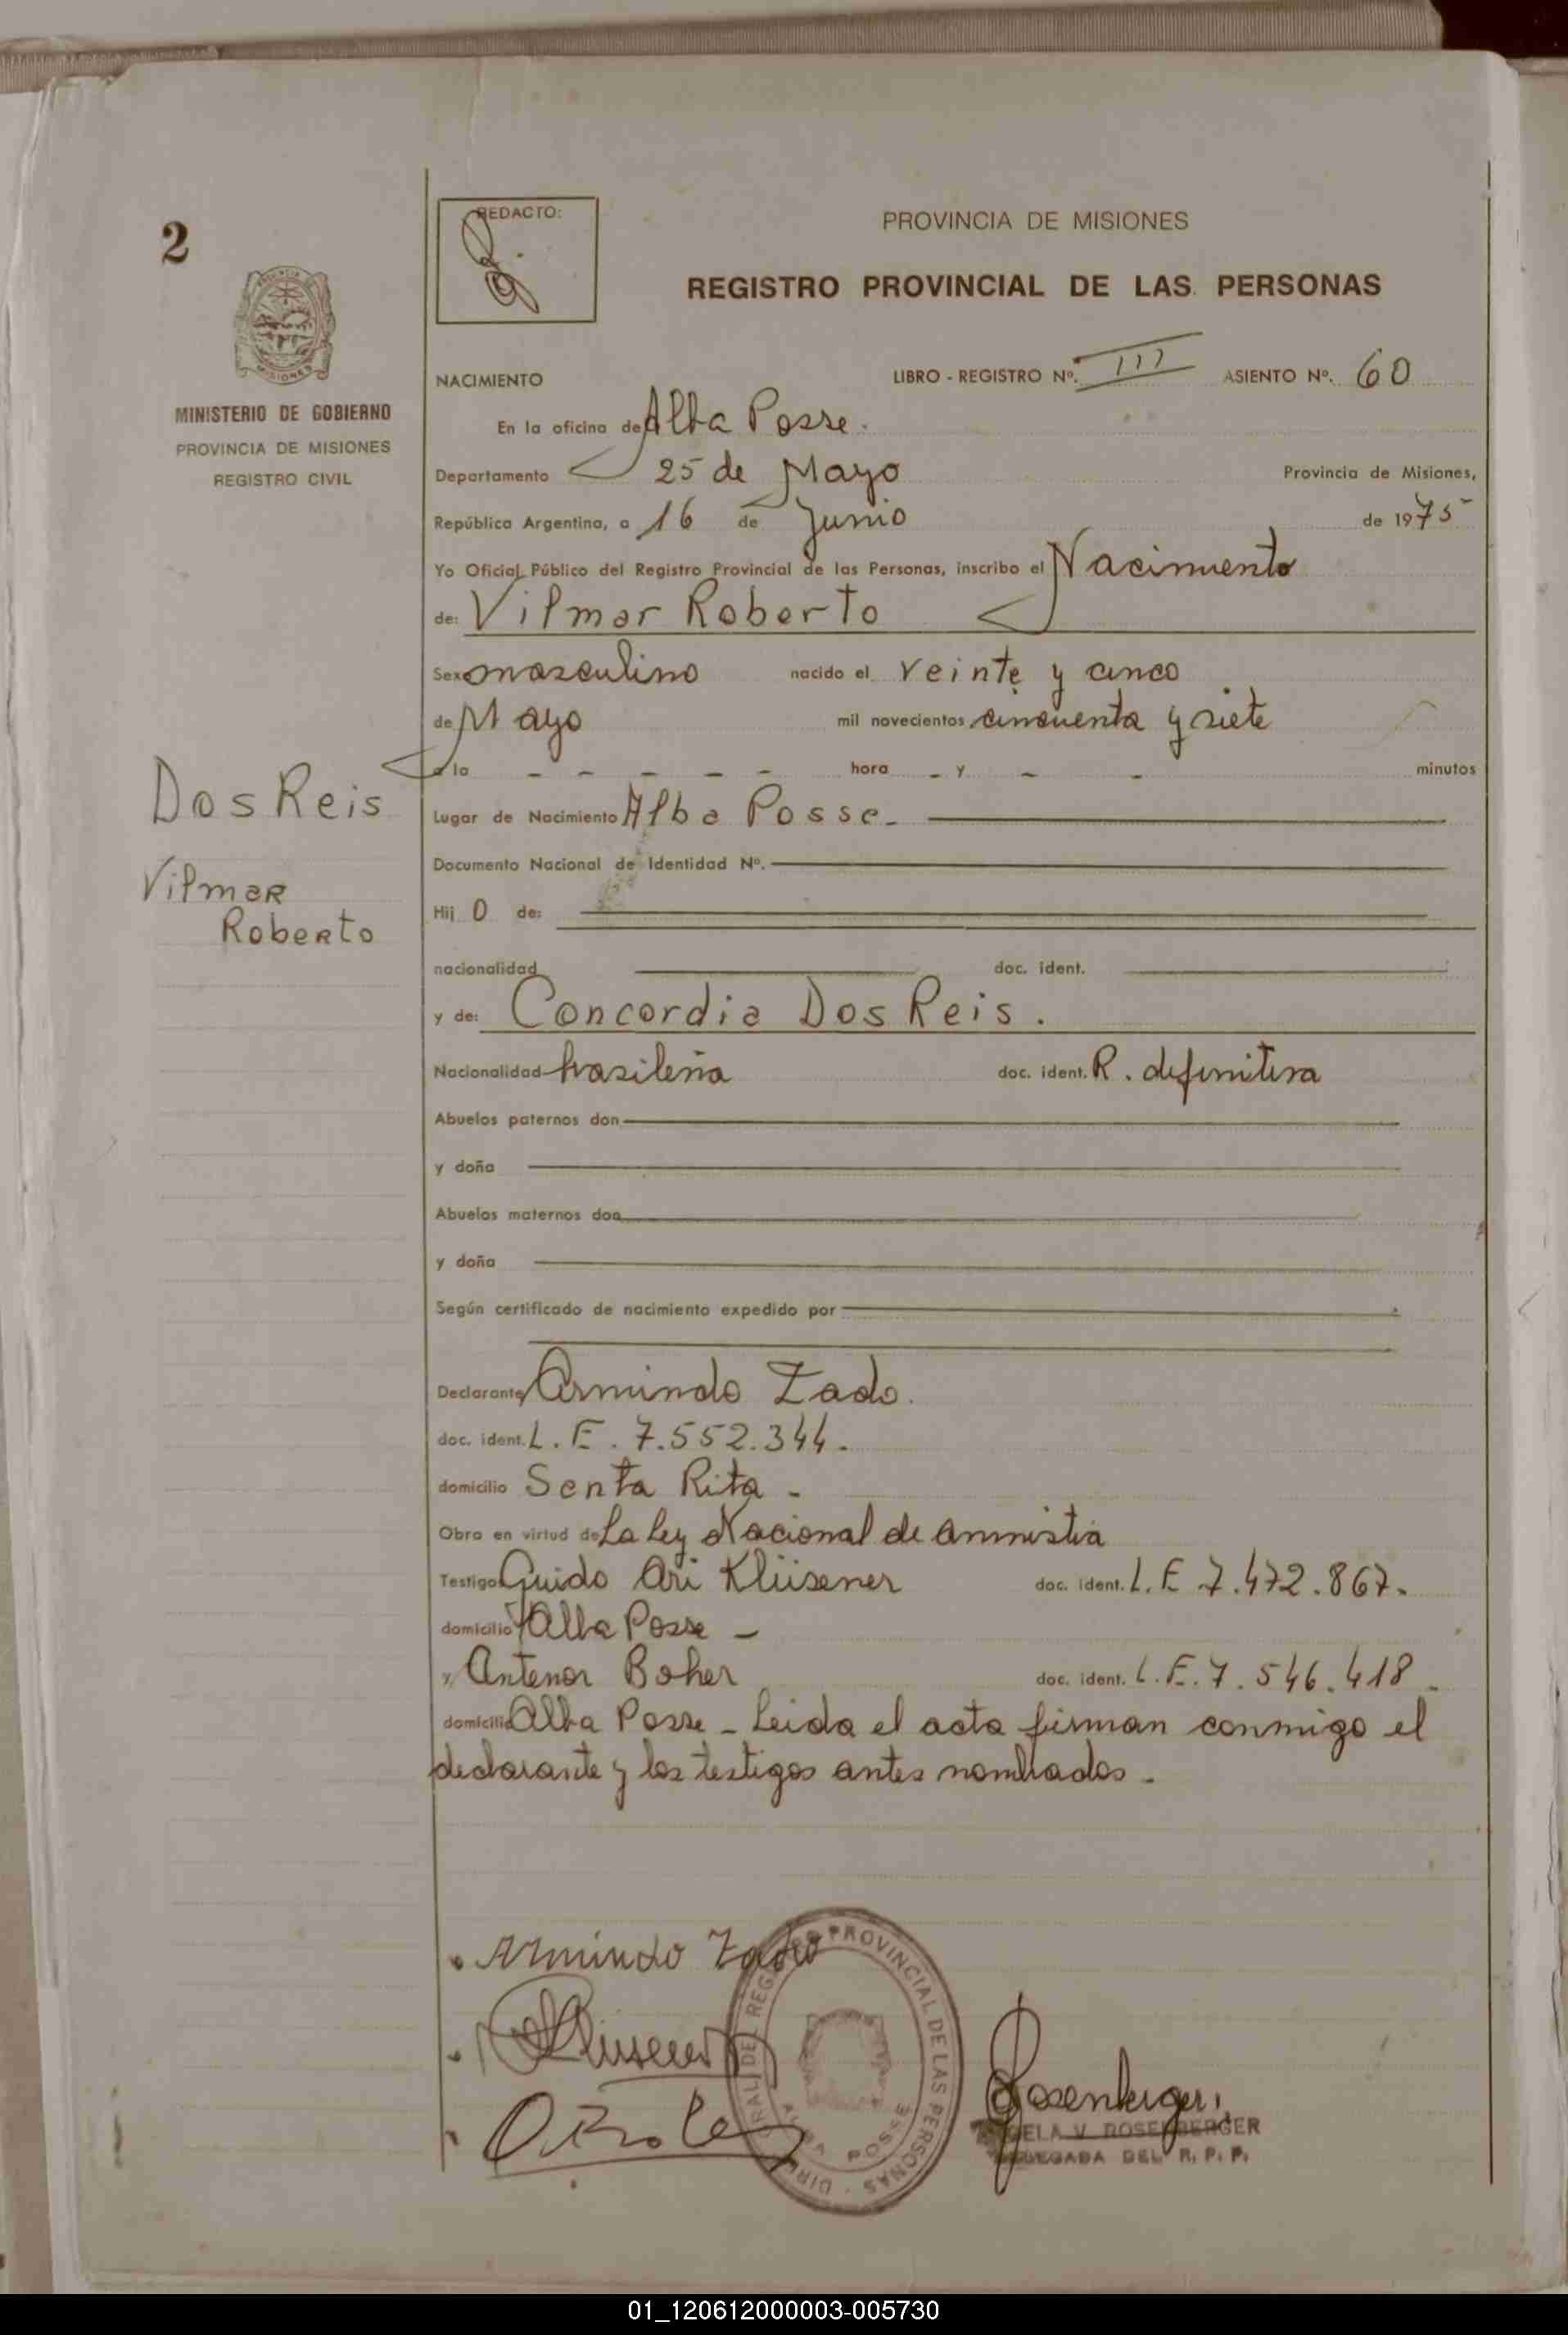 2
REDACTO:
PROVINCIA DE MISIONES
REGISTRO PROVINCIAL DE LAS PERSONAS
MINISTERIO DE GOBIERNO
PROVINCIA DE MISIONES
REGISTRO CIVIL
NACIMIENTO LIBRO - REGISTRO Nº. III ASIENTO Nº. 60
En la oficina de Alba Posse.
Departamento 25 de Mayo Provincia de Misiones,
República Argentina, a 16 de Junio de 1975
Yo Oficial Público del Registro Provincial de las Personas, inscribo el Nacimiento
de: Vilmar Roberto
Sexo masculino nacido el veinte y cinco
de Mayo mil novecientos cincuenta y siete
a la - - - - - hora - y - - minutos
Dos Reis
Vilmar
Roberto
Lugar de Nacimiento Alba Posse-
Documento Nacional de Identidad Nº.
Hij O de:
nacionalidad doc. ident.
y de: Concordia Dos Reis.
Nacionalidad brasileña doc. ident. R. definitiva
Abuelos paternos don
y doña
Abuelos maternos don
y doña
Según certificado de nacimiento expedido por
Declarante Armindo Zado.
doc. ident. L. E. 7.552.344.
domicilio Santa Rita -
Obra en virtud de La Ley Nacional de Amnistia
Testigo Guido Ari Klüsener doc. ident. L. E 7.472.867.
domicilio Alba Posse -
y Antenor Boher doc. ident. L. E. 7.546.418.
domicilio Alba Posse - Leida el acta firman conmigo el
declarante y los testigos antes nombrados -
Armindo Zado
Klusener
Rosenberger
ROSENBERGER
DELEGADA DEL R. P. P.
REGISTRO PROVINCIAL DE LAS PERSONAS
ALBA POSSE
01_120612000003-005730